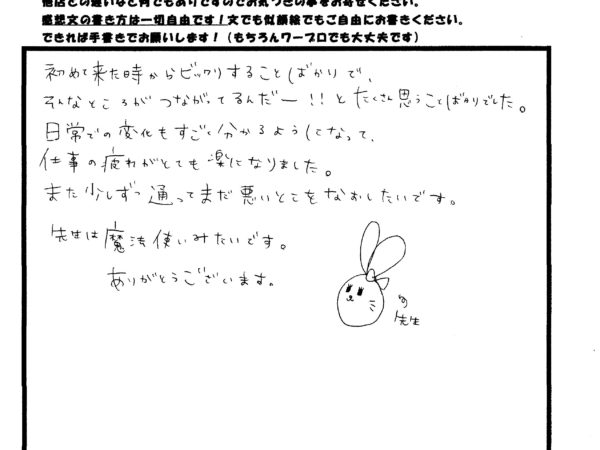 他店との違いなど何でもありですのでお気づきの事をお寄せください。
感想文の書き方は一切自由です！文でも似顔絵でもご自由にお書きください。
できれば手書きでお願いします！（もちろんワープロでも大丈夫です）
初めて来た時からビックリすることばかりで、
そんなところがつながってるんだー！！とたくさん思うことばかりでした。
日常での変化もすごく分かるようになって、
仕事の疲れがとても楽になりました。
また少しずつ通ってまだ悪いとこをなおしたいです。
先生は魔法使いみたいです。
ありがとうございます。
先生